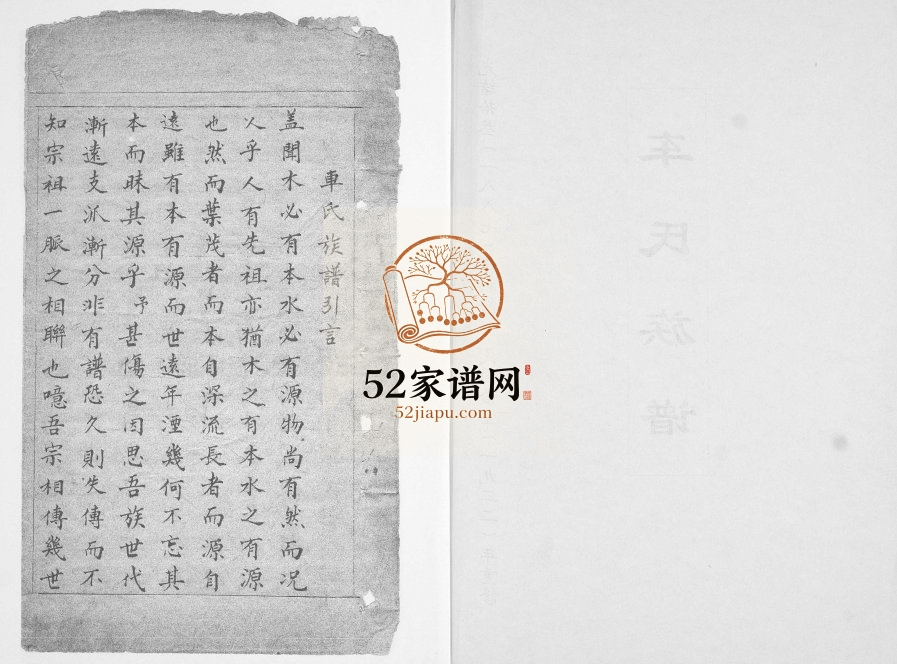 車氏族譜引言
盖聞木必有本水必有源物尚有然而况
人乎人有先祖亦猶木之有本水之有源
也然而葉茂者而本自深流長者而源自
遠雖有本有源而世遠年湮幾何不忘其
本而昧其源乎予甚傷之因思吾族世代
漸遠支派漸分非有譜恐久則失傳而不
知宗祖一脈之相聯也噫吾宗相傳幾世
52家谱网
52jiapu.com
车氏族谱